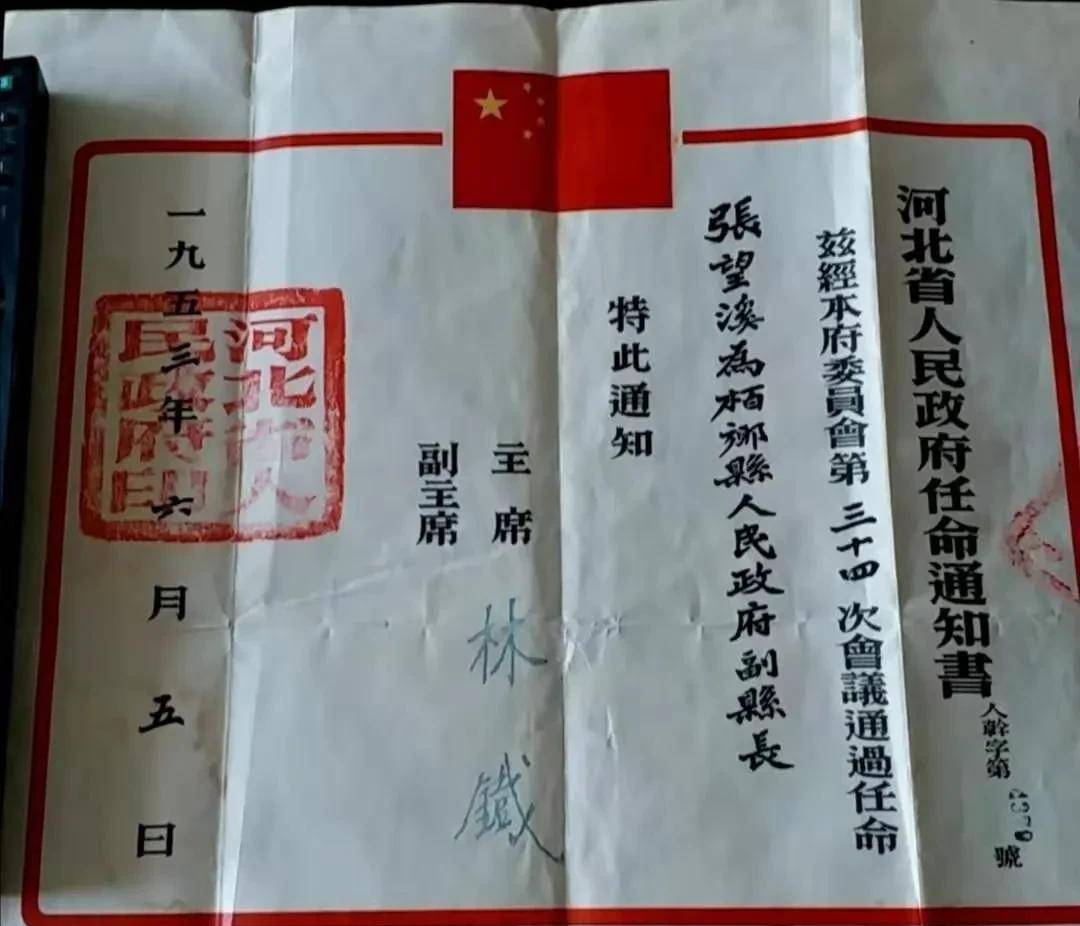 河北省人民政府任命通知書
人幹字第4379號
茲經本府委員會第三十四次會議通過任命
張望溪為栢鄉縣人民政府副縣長
特此通知
主席 林鐵
副主席
一九五三年六月五日
河北省人民政府印